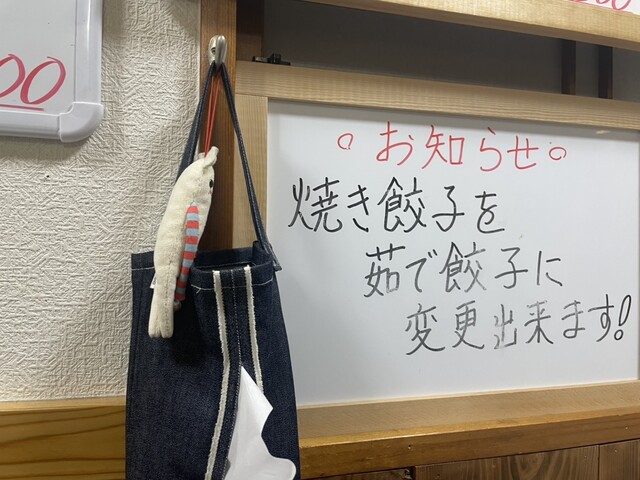 00
00
。お知らせ。
焼き餃子を
茹で餃子に
変更出来ます!